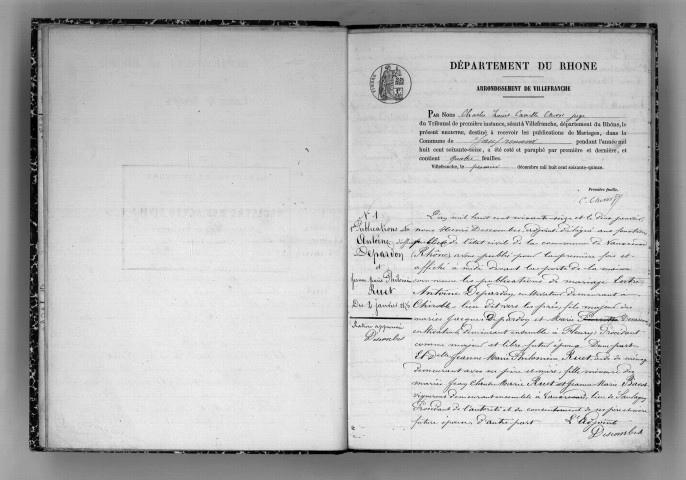 DÉPARTEMENT DU RHONE
ARRONDISSEMENT DE VILLEFRANCHE
PAR NOUS Charles Louis Camille juge
du Tribunal de première instance, séant à Villefranche, département du Rhône, le
présent REGISTRE, destiné à recevoir les publications de Mariages, dans la
Commune de Vauxrenard pendant l'année mil
huit cent soixante-seize, a été coté et paraphé par première et dernière, et
contient quatre feuilles.
Villefranche, le premier décembre mil huit cent soixante-quinze.
Première feuille.
N° 1
Publications de
Antoine
Depardon
et
Jeanne Marie Philomène
Ruet
Du 2 janvier 1876
Rature approuvée
Descombes
L'an mil huit cent soixante-seize et le deux janvier,
nous Descombes, adjoint délégué aux fonctions
de l'état civil de la commune de Vauxrenard
(Rhône) avons publié pour la première fois et
affiché à midi devant la porte de la maison
commune les publications de mariage Entre
Antoine Depardon cultivateur demeurant à
Chiroubles lieu dit vers les prés, fils majeur des
mariés Jacques Depardon et Marie
cultivateurs demeurant ensemble à Fleury Procédant
comme majeur et libre futur époux D'une part
Et Delle Jeanne Marie Philomène Ruet, aide de ménage
demeurant avec ses père et mère, fille mineure des
mariés Jean Claude Marie Ruet et Jeanne Marie
vignerons demeurant ensemble à Vauxrenard, lieu de
Procédant de l'autorité et du consentement de ses père et mère
future épouse, d'autre part L'Adjoint
Descombes